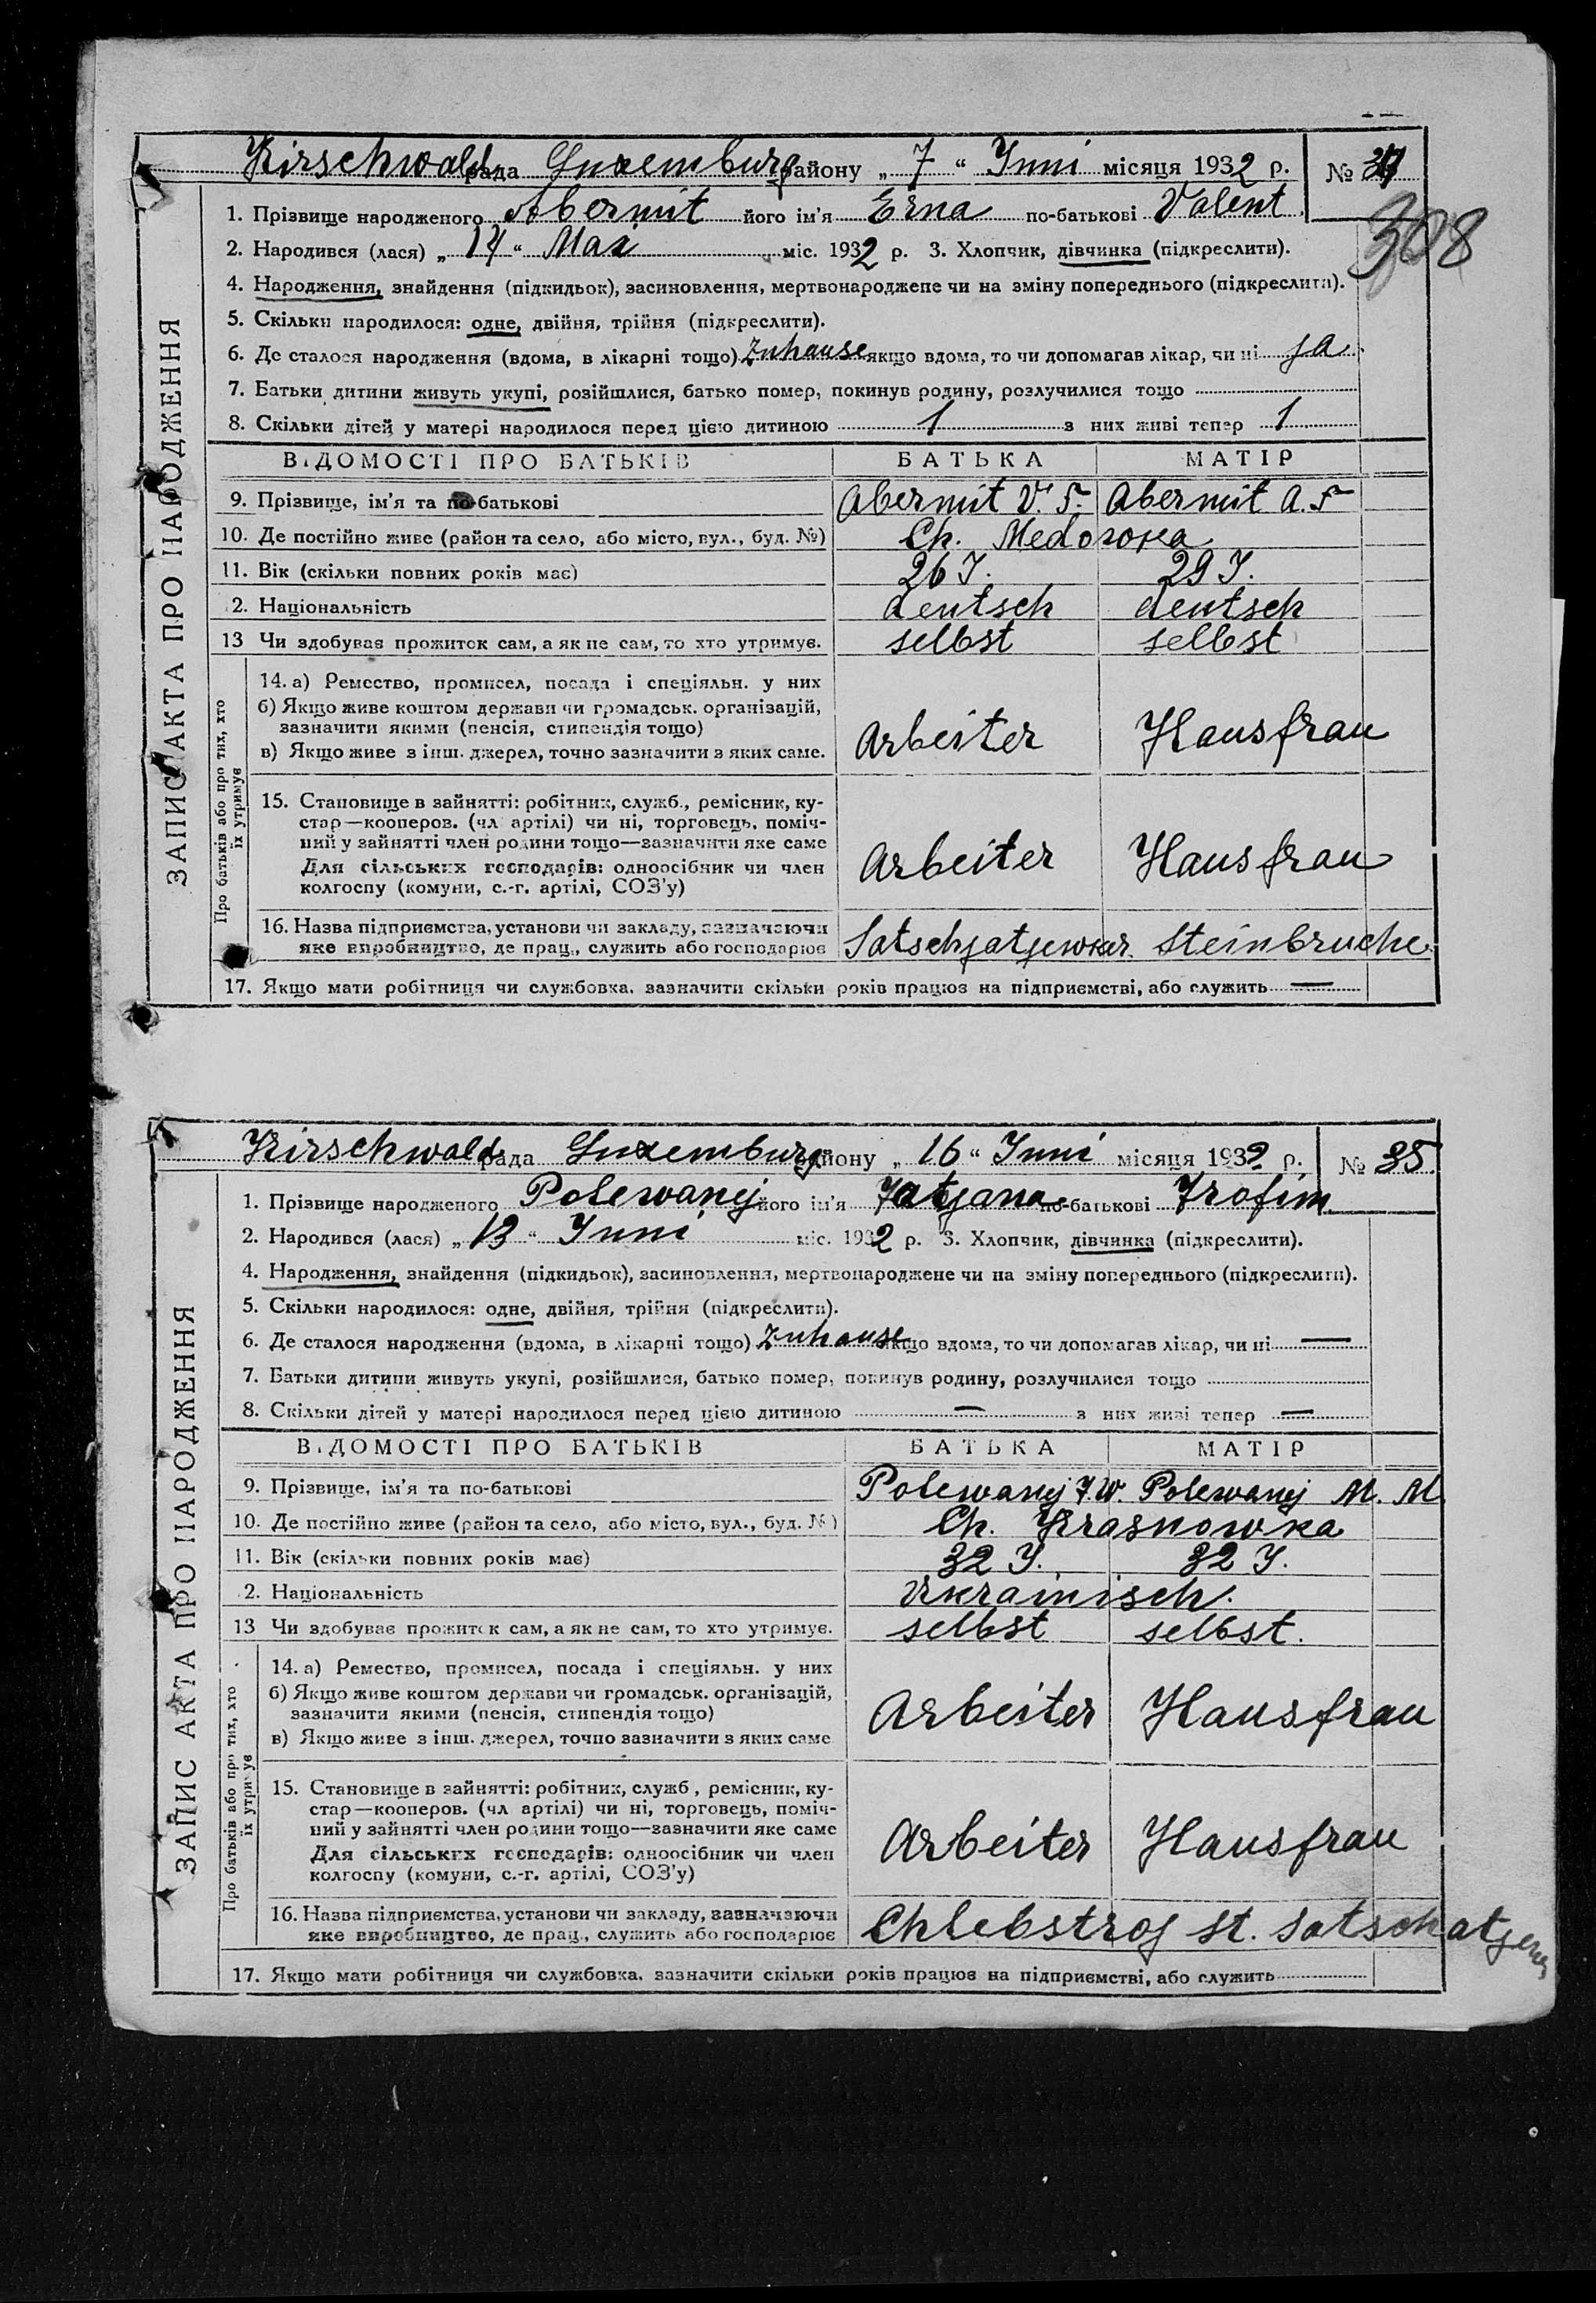 Kirschwald рада Luxemburg району „ 7 “ Juni місяця 1932 р. №
308
1. Прізвище народженого Abermit його ім'я Erna по-батькові Valent.
2. Народився (лася) „ 14 “ Mai міс. 1932 р. 3. Хлопчик, дівчинка (підкреслити).
4. Народження, знайдення (підкидьок), засиновлення, мертвонароджене чи на зміну попереднього (підкреслити).
5. Скільки народилося: одне, двійня, трійня (підкреслити).
6. Де сталося народження (вдома, в лікарні тощо) Zuhause якщо вдома, то чи допомагав лікар, чи ні ja
7. Батьки дитини живуть укупі, розійшлися, батько помер, покинув родину, розлучилися тощо
8. Скільки дітей у матері народилося перед цією дитиною 1 з них живі тепер 1
ВІДОМОСТІ ПРО БАТЬКІВ БАТЬКА МАТІР
9. Прізвище, ім'я та по-батькові Abermit V. F. Abermit A. F
10. Де постійно живе (район та село, або місто, вул., буд. №) Ch.
11. Вік (скільки повних років має) 26 J. 29 J.
2. Національність deutsch deutsch
13 Чи здобуває прожиток сам, а як не сам, то хто утримує. selbst selbst
ЗАПИС АКТА ПРО НАРОДЖЕННЯ
Про батьків або про тих, хто їх утримує
14. а) Ремество, промисел, посада і спеціяльн. у них
б) Якщо живе коштом держави чи громадськ. організацій,
зазначити якими (пенсія, стипендія тощо)
в) Якщо живе з інш. джерел, точно зазначити з яких саме. Arbeiter Hausfrau
15. Становище в зайнятті: робітник, служб., ремісник, ку-
стар—кооперов. (чл артілі) чи ні, торговець, поміч-
ний у зайнятті член родини тощо—зазначити яке саме
Для сільських господарів: одноосібник чи член Arbeiter Hausfrau
колгоспу (комуни, с.-г. артілі, СОЗ'у)
16. Назва підприємства, установи чи закладу, зазначаючи
яке виробництво, де прац., служить або господарює Satschjatjewkar. Steinbruche.
17. Якщо мати робітниця чи службовка, зазначити скільки років працює на підприємстві, або служить —
Kirschwald рада Luxemburg району „ 16 “ Juni місяця 1932 р. № 35
1. Прізвище народженого Polewanej його ім'я Tatjana по-батькові Trofim
2. Народився (лася) „ 13 “ Juni міс. 1932 р. 3. Хлопчик, дівчинка (підкреслити).
4. Народження, знайдення (підкидьок), засиновлення, мертвонароджене чи на зміну попереднього (підкреслити).
5. Скільки народилося: одне, двійня, трійня (підкреслити).
6. Де сталося народження (вдома, в лікарні тощо) Zuhause якщо вдома, то чи допомагав лікар, чи ні —
7. Батьки дитини живуть укупі, розійшлися, батько помер, покинув родину, розлучилися тощо
8. Скільки дітей у матері народилося перед цією дитиною — з них живі тепер —
ВІДОМОСТІ ПРО БАТЬКІВ БАТЬКА МАТІР
9. Прізвище, ім'я та по-батькові Polewanej T. W. Polewanej M. M.
10. Де постійно живе (район та село, або місто, вул., буд. №) Ch. Krasnowka
11. Вік (скільки повних років має) 32 J. 32 J.
2. Національність Ukrainisch.
13 Чи здобуває прожиток сам, а як не сам, то хто утримує. selbst selbst.
ЗАПИС АКТА ПРО НАРОДЖЕННЯ
Про батьків або про тих, хто їх утримує
14. а) Ремество, промисел, посада і спеціяльн. у них
б) Якщо живе коштом держави чи громадськ. організацій,
зазначити якими (пенсія, стипендія тощо)
в) Якщо живе з інш. джерел, точно зазначити з яких саме Arbeiter Hausfrau
15. Становище в зайнятті: робітник, служб, ремісник, ку-
стар—кооперов. (чл артілі) чи ні, торговець, поміч-
ний у зайнятті член родини тощо—зазначити яке саме
Для сільських господарів: одноосібник чи член Arbeiter Hausfrau
колгоспу (комуни, с.-г. артілі, СОЗ'у)
16. Назва підприємства, установи чи закладу, зазначаючи
яке виробництво, де прац., служить або господарює Chlebstroj st.
17. Якщо мати робітниця чи службовка, зазначити скільки років працює на підприємстві, або служить